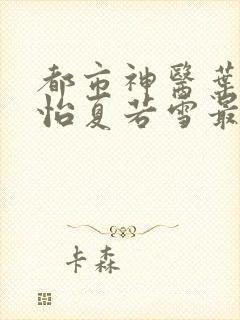 都市神醫葉
怡夏若雪最
卡森